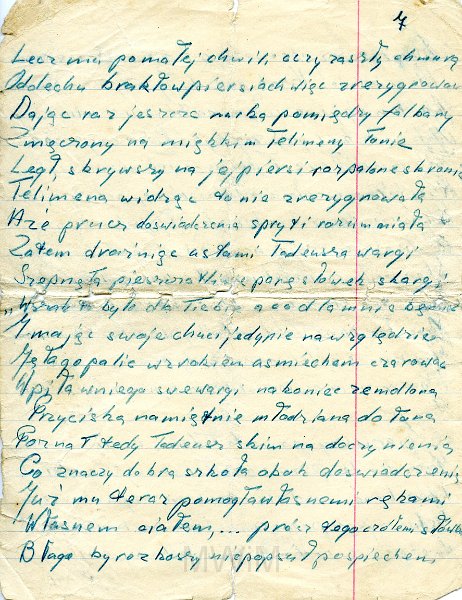 7
Lecz mu po małej chwili oczy zaszły chmurą
Oddechu brakło w piersiach więc zrezygnował
Dając raz jeszcze nurka pomiędzy falbany
Zmęczony na miękkim Telimeny łonie
Legł, skrywszy na jej piersi rozpalone skronie
Telimena widząc to nie zrezygnowała
A że prucz doswiadczenia spryt i rozum miała
Zatem drażniąc ustami Tadeusza wargi
Szepnęła pieszczotliwie parę słówek skargi
to było dla Ciebie a co dla mnie będzie
I mając swoje chuci jedynie na względzie
Jęła go palić wzrokiem usmiechem czarować
Wpiła w niego swe wargi na koniec zemdlona
Przyciska namiętnie młodziana do łona
Poznał tedy Tadeusz skim ma do czynienia
Co znaczy dobra szkoła obok doswiadczenia
Już mu teraz pomogła własnemi rękami
Własnem ciałem,... prócz tego czołem
Błaga by rozkoszy nie popsuł pospiechem
MWM